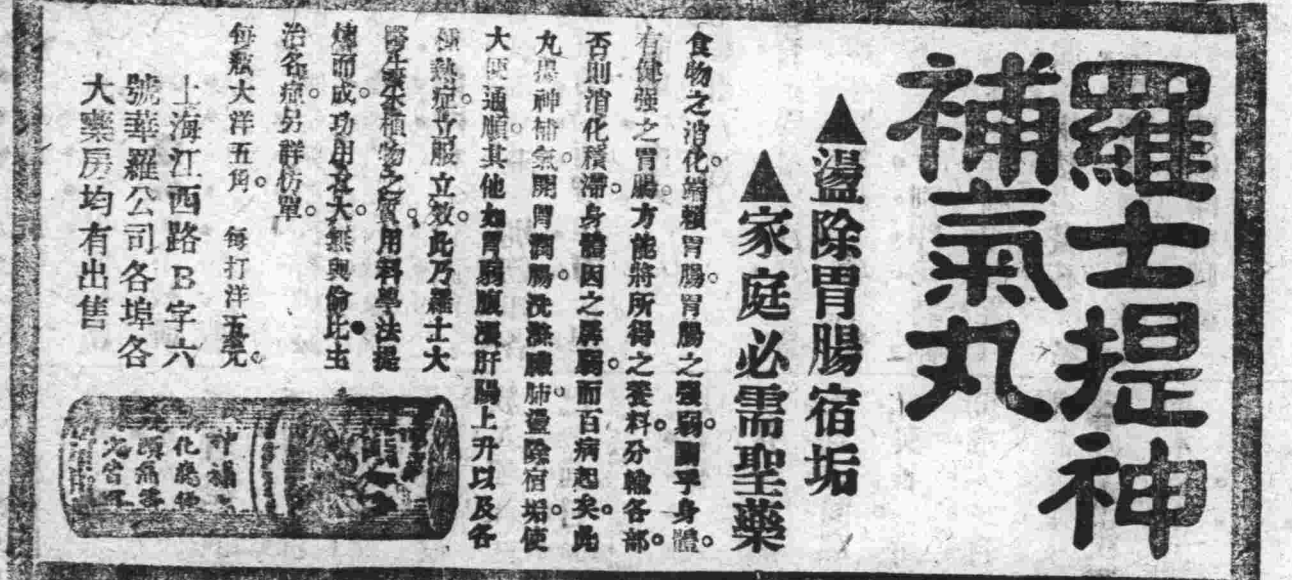 羅士提神
補氣丸
▲盪除胃腸宿垢
▲家庭必需聖藥
食物之消化。端賴胃腸。胃腸之強弱。關乎身體。
有健强之胃腸。方能將所得之養料。分輸各部。
否則消化積滯。身體因之孱弱。而百病起矣。此
丸提神補氣。開胃潤腸。洗滌臟肺。盪除宿垢。使
大便通順。其他如胃弱腹漲肝陽上升以及各
種熱症。立服立效。此乃羅士大
醫生採植物之質。用科學法提
煉而成。功用之大。無與倫比。主
治各症。另詳仿單。
每瓶大洋五角。 每打洋五元。
上海江西路B字六
號華羅公司各埠各
大藥房均有出售
神補
化
頭痛